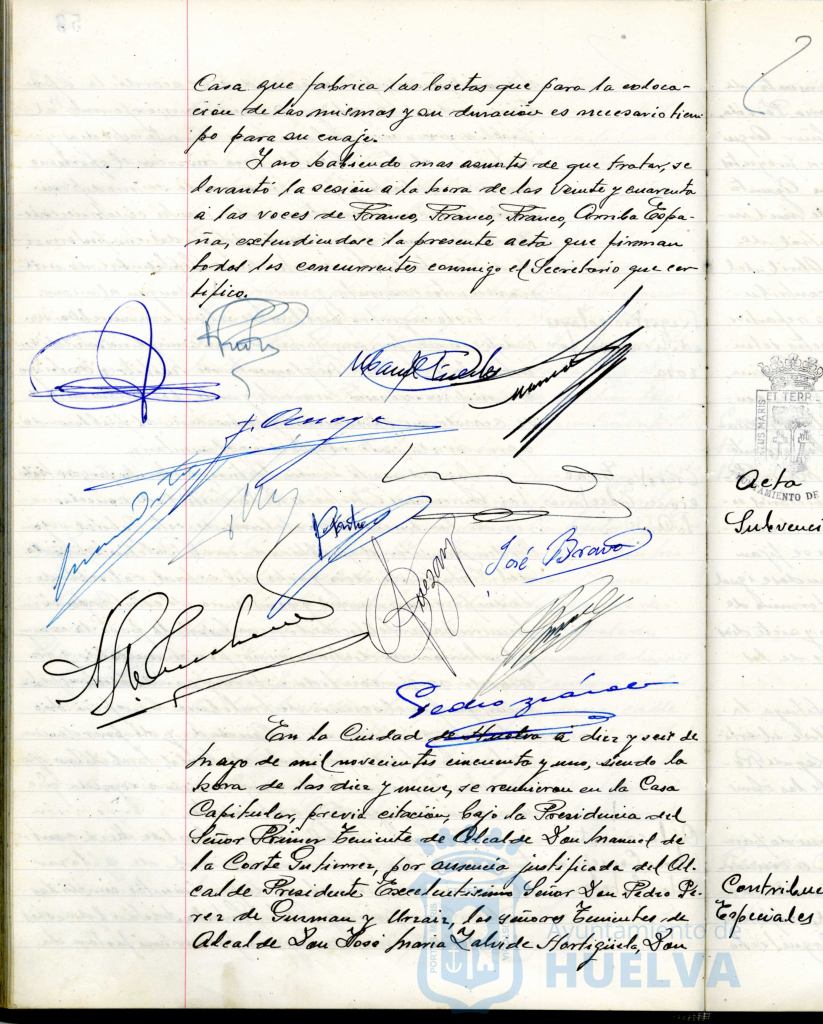 Casa que fabrica las losetas que para la coloca-
ción de las mismas y su duración es necesario tiem-
po para su cuaje.
Y no habiendo mas asuntos de que tratar, se
levantó la sesión a la hora de las veinte y cuarenta
á las voces de Franco, Franco, Franco, Arriba Espa-
ña, extendiendose la presente acta que firman
todos los concurrentes conmigo el Secretario que cer-
tifico.
José Bravo
Pedro
En la Ciudad de Huelva á diez y seis de
mayo de mil novecientos cincuenta y uno, siendo la
hora de las diez y nueve, se reunieron en la Casa
Capitular, previa citación, bajo la Presidencia del
Señor Primer Teniente de Alcalde Don Manuel de
la Corte Gutierrez, por ausencia justificada del Al-
calde Presidente Excelentisimo Señor Don Pedro Pe-
rez de Guzman y Urzaiz, los señores Tenientes de
Alcalde Don José Maria Zalvide Hortigüela, Don
ET TERR
Acta
AMIENTO DE
Subvenci
Contribuc
Especiales
Ayuntamiento de
HUELVA